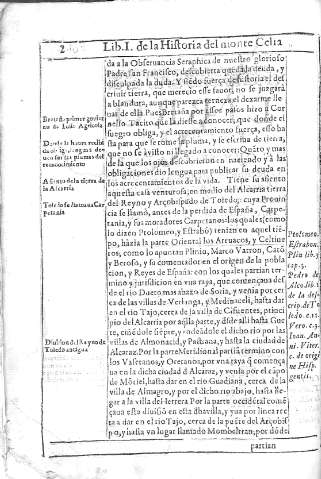 2 Lib.I. de la Historia del monte Celia
da a la Observancia Seraphica de nuestro glorioso
Padre san Francisco, descubierta quedà la deuda, y
disculpada la duda. Y siẽdo fuerça desta historia el des
crivir tierra, que merecio este favor, no se juzgarà
a blandura, aunque parezca terneza el dexarme lle-
nesio Tacito que la diesse a conocer, que donde el
ruego obliga, y el acrecentamiento fuerça, esso ba
sta para que le tome la pluma, y le escriva de tierra,
que no se aviso ni llegado a conocer: Quāto y mas
de la que los ojos descubrieron en naciendo y à las
obligaciones dio lengua para publicar su deuda en
los acrecentamientos de la vida. Tiene su assiento
aquesta casa venturosa, en medio del Alcarria tierra
del Reyno y Arçobispado de Toledo; cuya Provin
cia se llamò, antes de la perdida de España, Carpe-
tania, y sus moradores Carpetanos: los quales (como
lo dizen Ptolomeo, y Estrabō) tenian en aquel tiẽ-
po, hazia la parte Oriental los Arvacos, y Celtibe
ros, como lo apuntan Plinio, Marco Varron, Catō
y Beroso, y su comentador en el origen de la pobla
cion, y Reyes de España: con los quales partian ter-
mino y jurisdicion en una raya, que començava des
de el rio Duero mas abaxo de Soria, y venia por cer
ca de las villas de Verlanga, y Medinaceli, hasta dar
en el rio Tajo, cerca de la villa de Cifuentes, princi
pio del Alcarria por aq̃lla parte, y desde alli hasta Gue
te, ciñe dole siẽpre, y vẽdo desde el dicho rio por las
villas de Almonacid, y Pastrana, y hasta la ciudad de
Alcaraz. Por la parte Meridional partiā termino con
los Vastetanos, y Oretanos, por una raya q̃ comença
va en la dicha ciudad de Alcaraz, y venia por el cāpo
de Mōtiel, hasta dar en el rio Guadiana, cerca de la
villa de Almagro, y por el dicho rio abajo, hasta lle-
gar a la villa del Herrera Por la parte Occidental comē
çava esta divisiō en esta dha villa, y yva por linea rec
ta a dar en el rio Tajo, cerca de la puẽte del Arçobis
po, y hasta vn lugar llamado Mombeltran, por dōde
partian
A siento de la tierra de
la Alcarria
Toledo se llamava Car
petania
Division del Reyno de
Toledo antigua
Ptolomeo.
Estrabon.
Plin. lib. 3
cap. 3.
Pedro de
Alco. lib. 1.
de la des-
crip. de To
ledo. c. 12.
Vero. c. 3.
Ioan. An-
ni. Viter.
c. de origi
ne Hisp.
gentis.